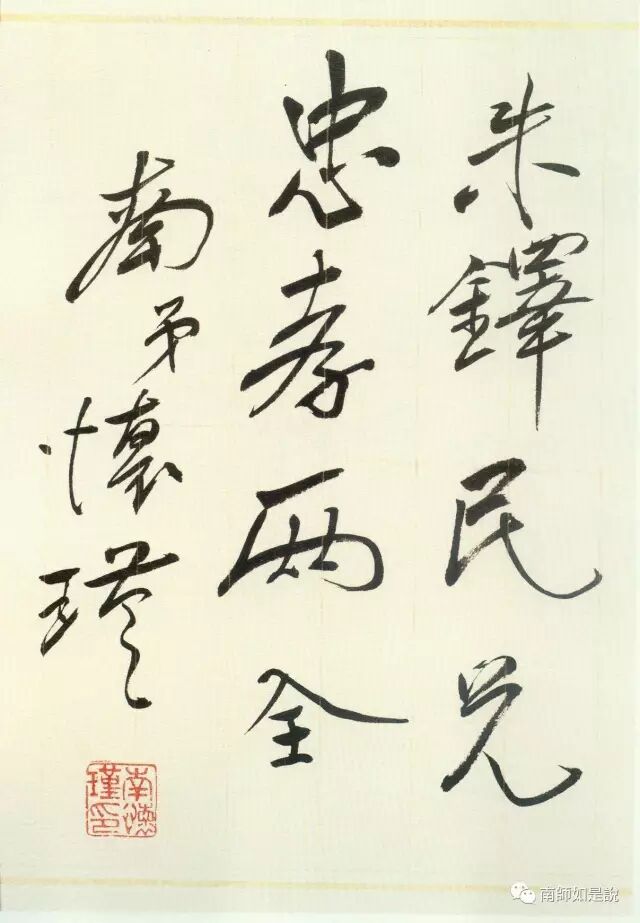 朱鐸民兄
忠孝兩全
南弟懷瑾
南懷瑾印
南師如是說